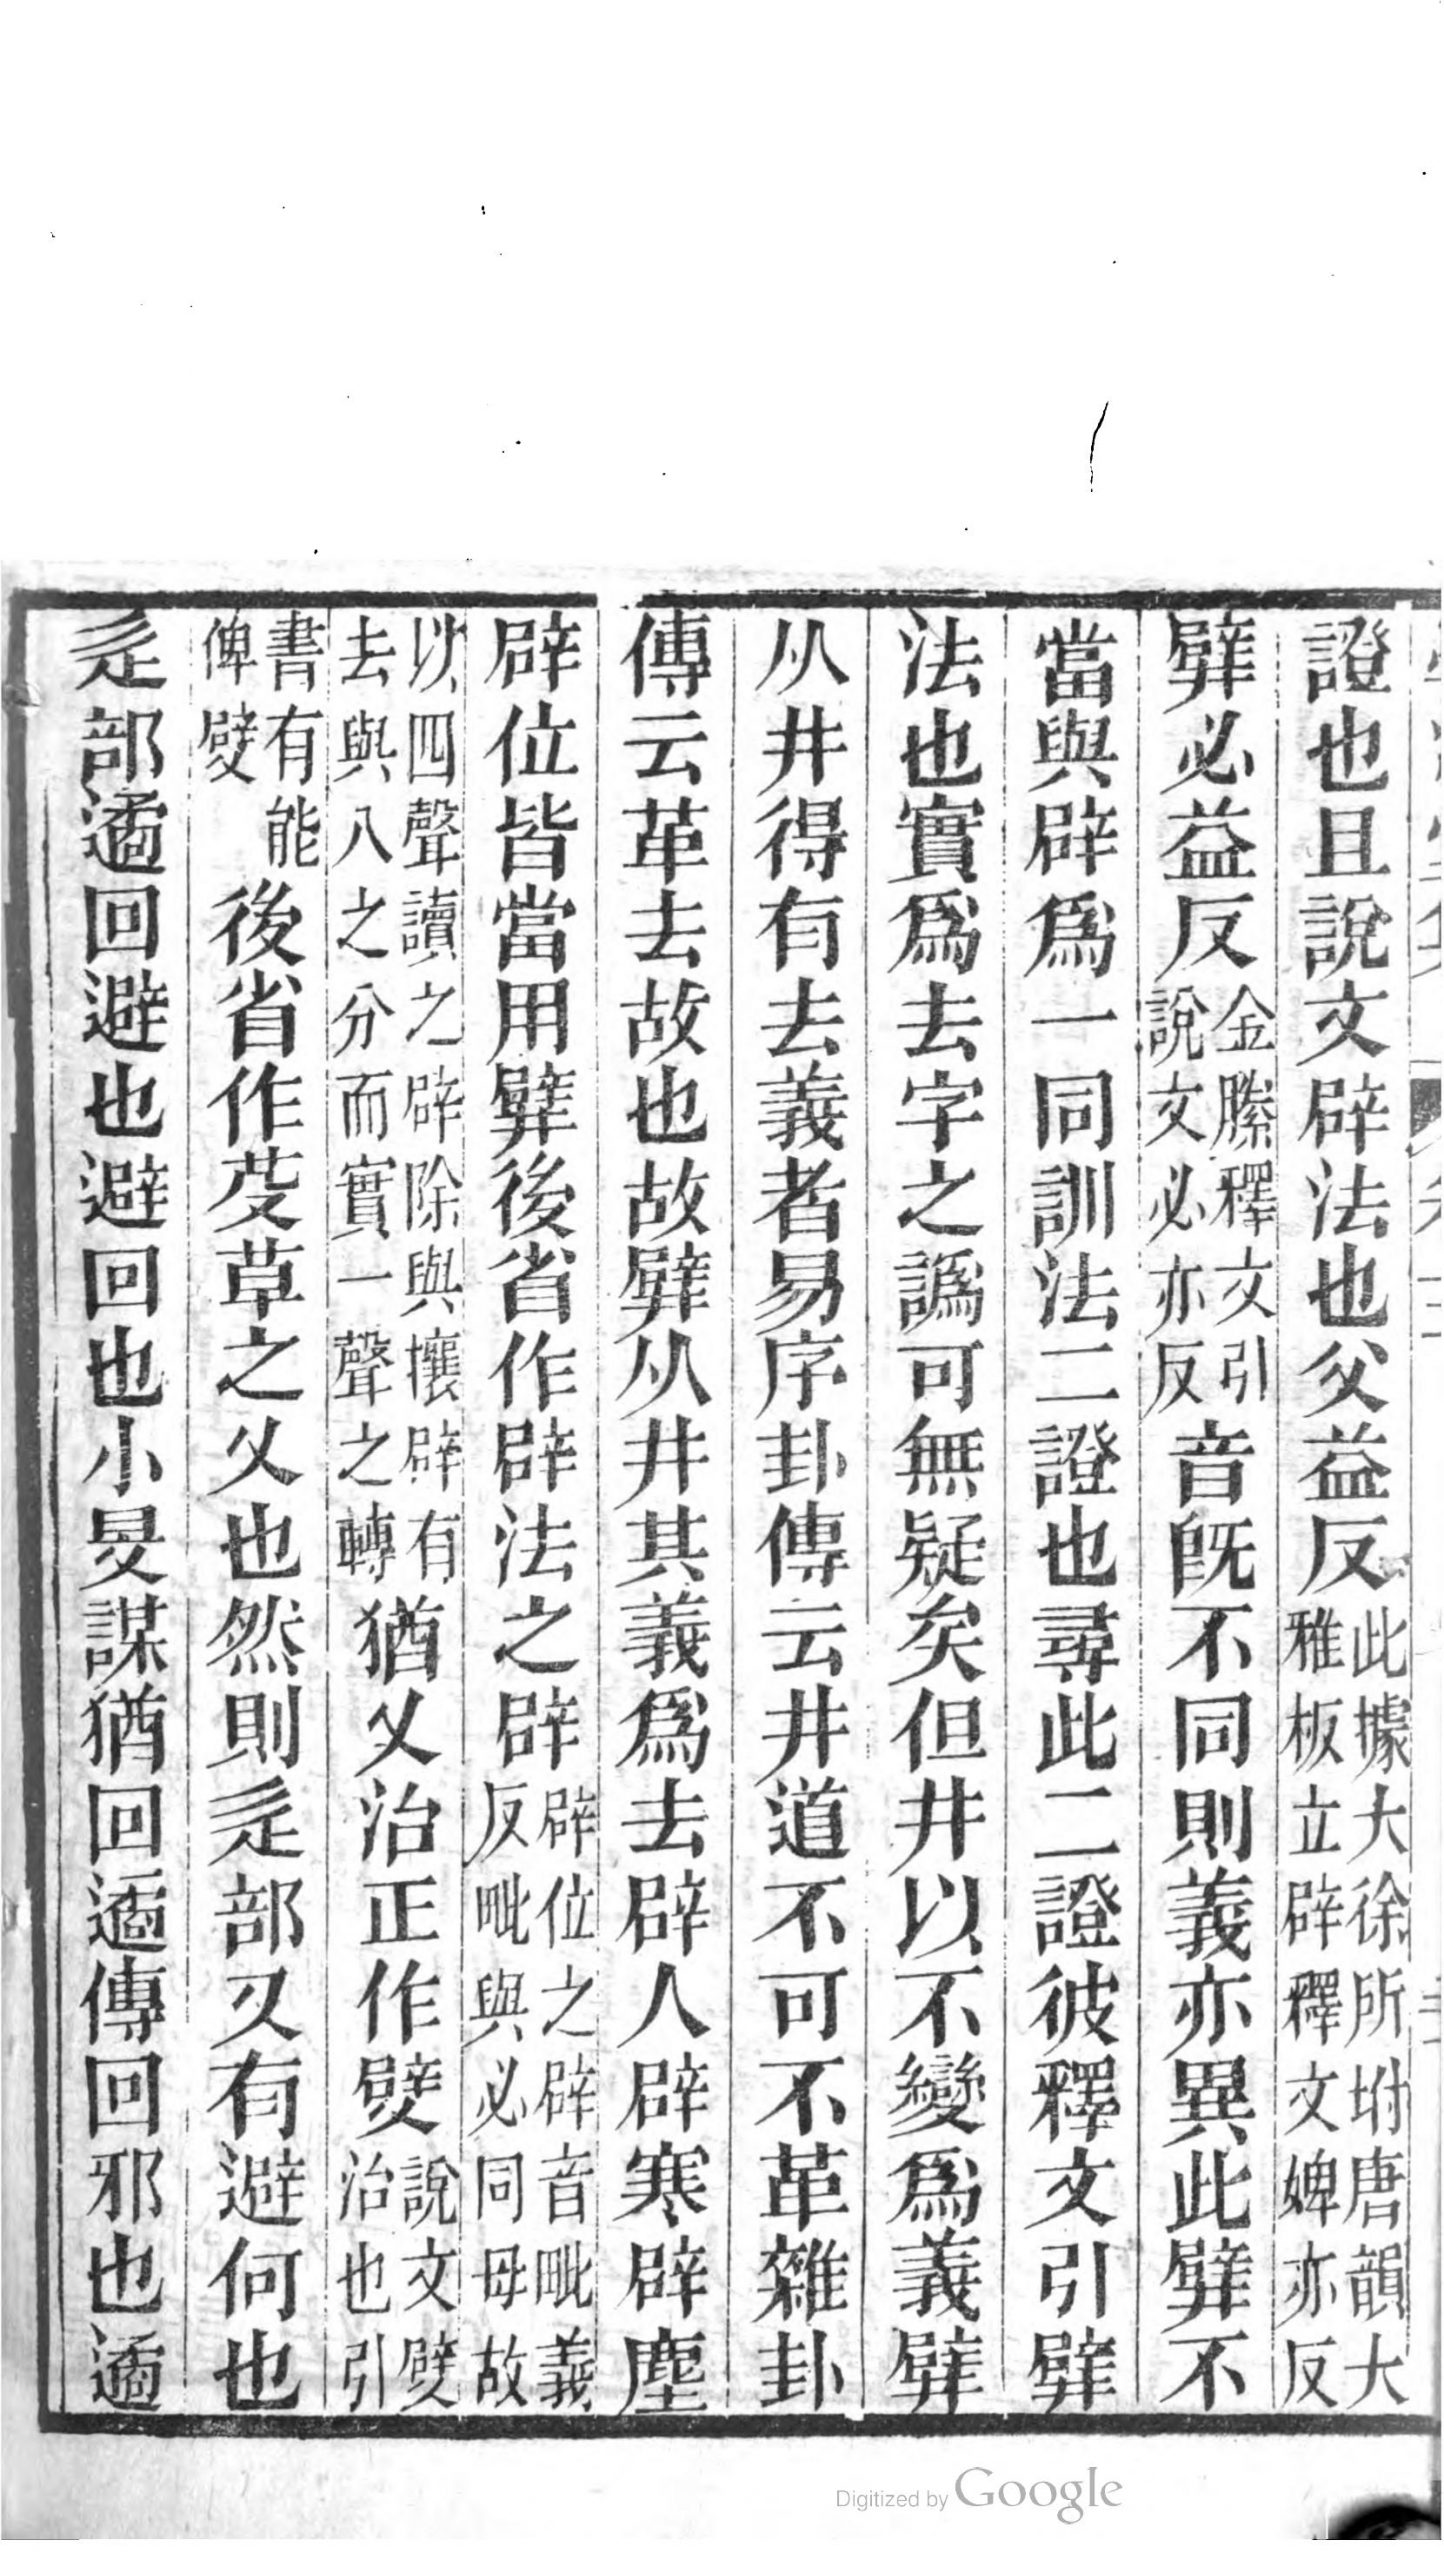 證也且說文辟法也父益反此據大徐所坿唐韻大
雅板立辟釋文婢亦反
𨐨必益反金縢釋文引
說文必亦反
音旣不同則義亦異此𨐨不
當與辟爲一同訓法二證也尋此二證彼釋文引𨐨
法也實爲去字之譌可無疑矣但井以不變爲義𨐨
从井得有去義者易序卦傳云井道不可不革雜卦
傳云革去故也故𨐨从井其義爲去辟人辟寒辟塵
辟位皆當用𨐨後省作辟法之辟辟位之辟音毗義
反毗與必同母故
以四聲讀之辟除與攘辟有
去與八之分而實一聲之轉
猶乂治正作𨐢說文𨐢
治也引
書有能
俾𨐢
後省作芟草之乂也然則辵部又有避何也
辵部遹回避也避回也小旻謀猶回遹傳回邪也遹
Digitized by Google